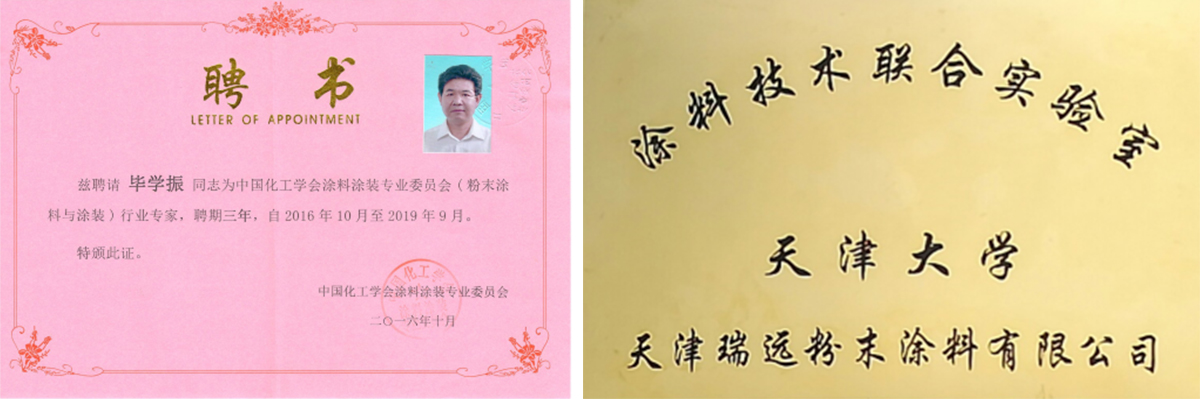 聘书
LETTER OF APPOINTMENT
兹聘请 毕学振 同志为中国化工学会涂料涂装专业委员会（粉末涂
料与涂装）行业专家，聘期三年，自2016年10月至2019年9月。
特颁此证。
中国化工学会涂料涂装专业委员会
二〇一六年十月
涂料技术联合实验室
天津大学
天津瑞远粉末涂料有限公司